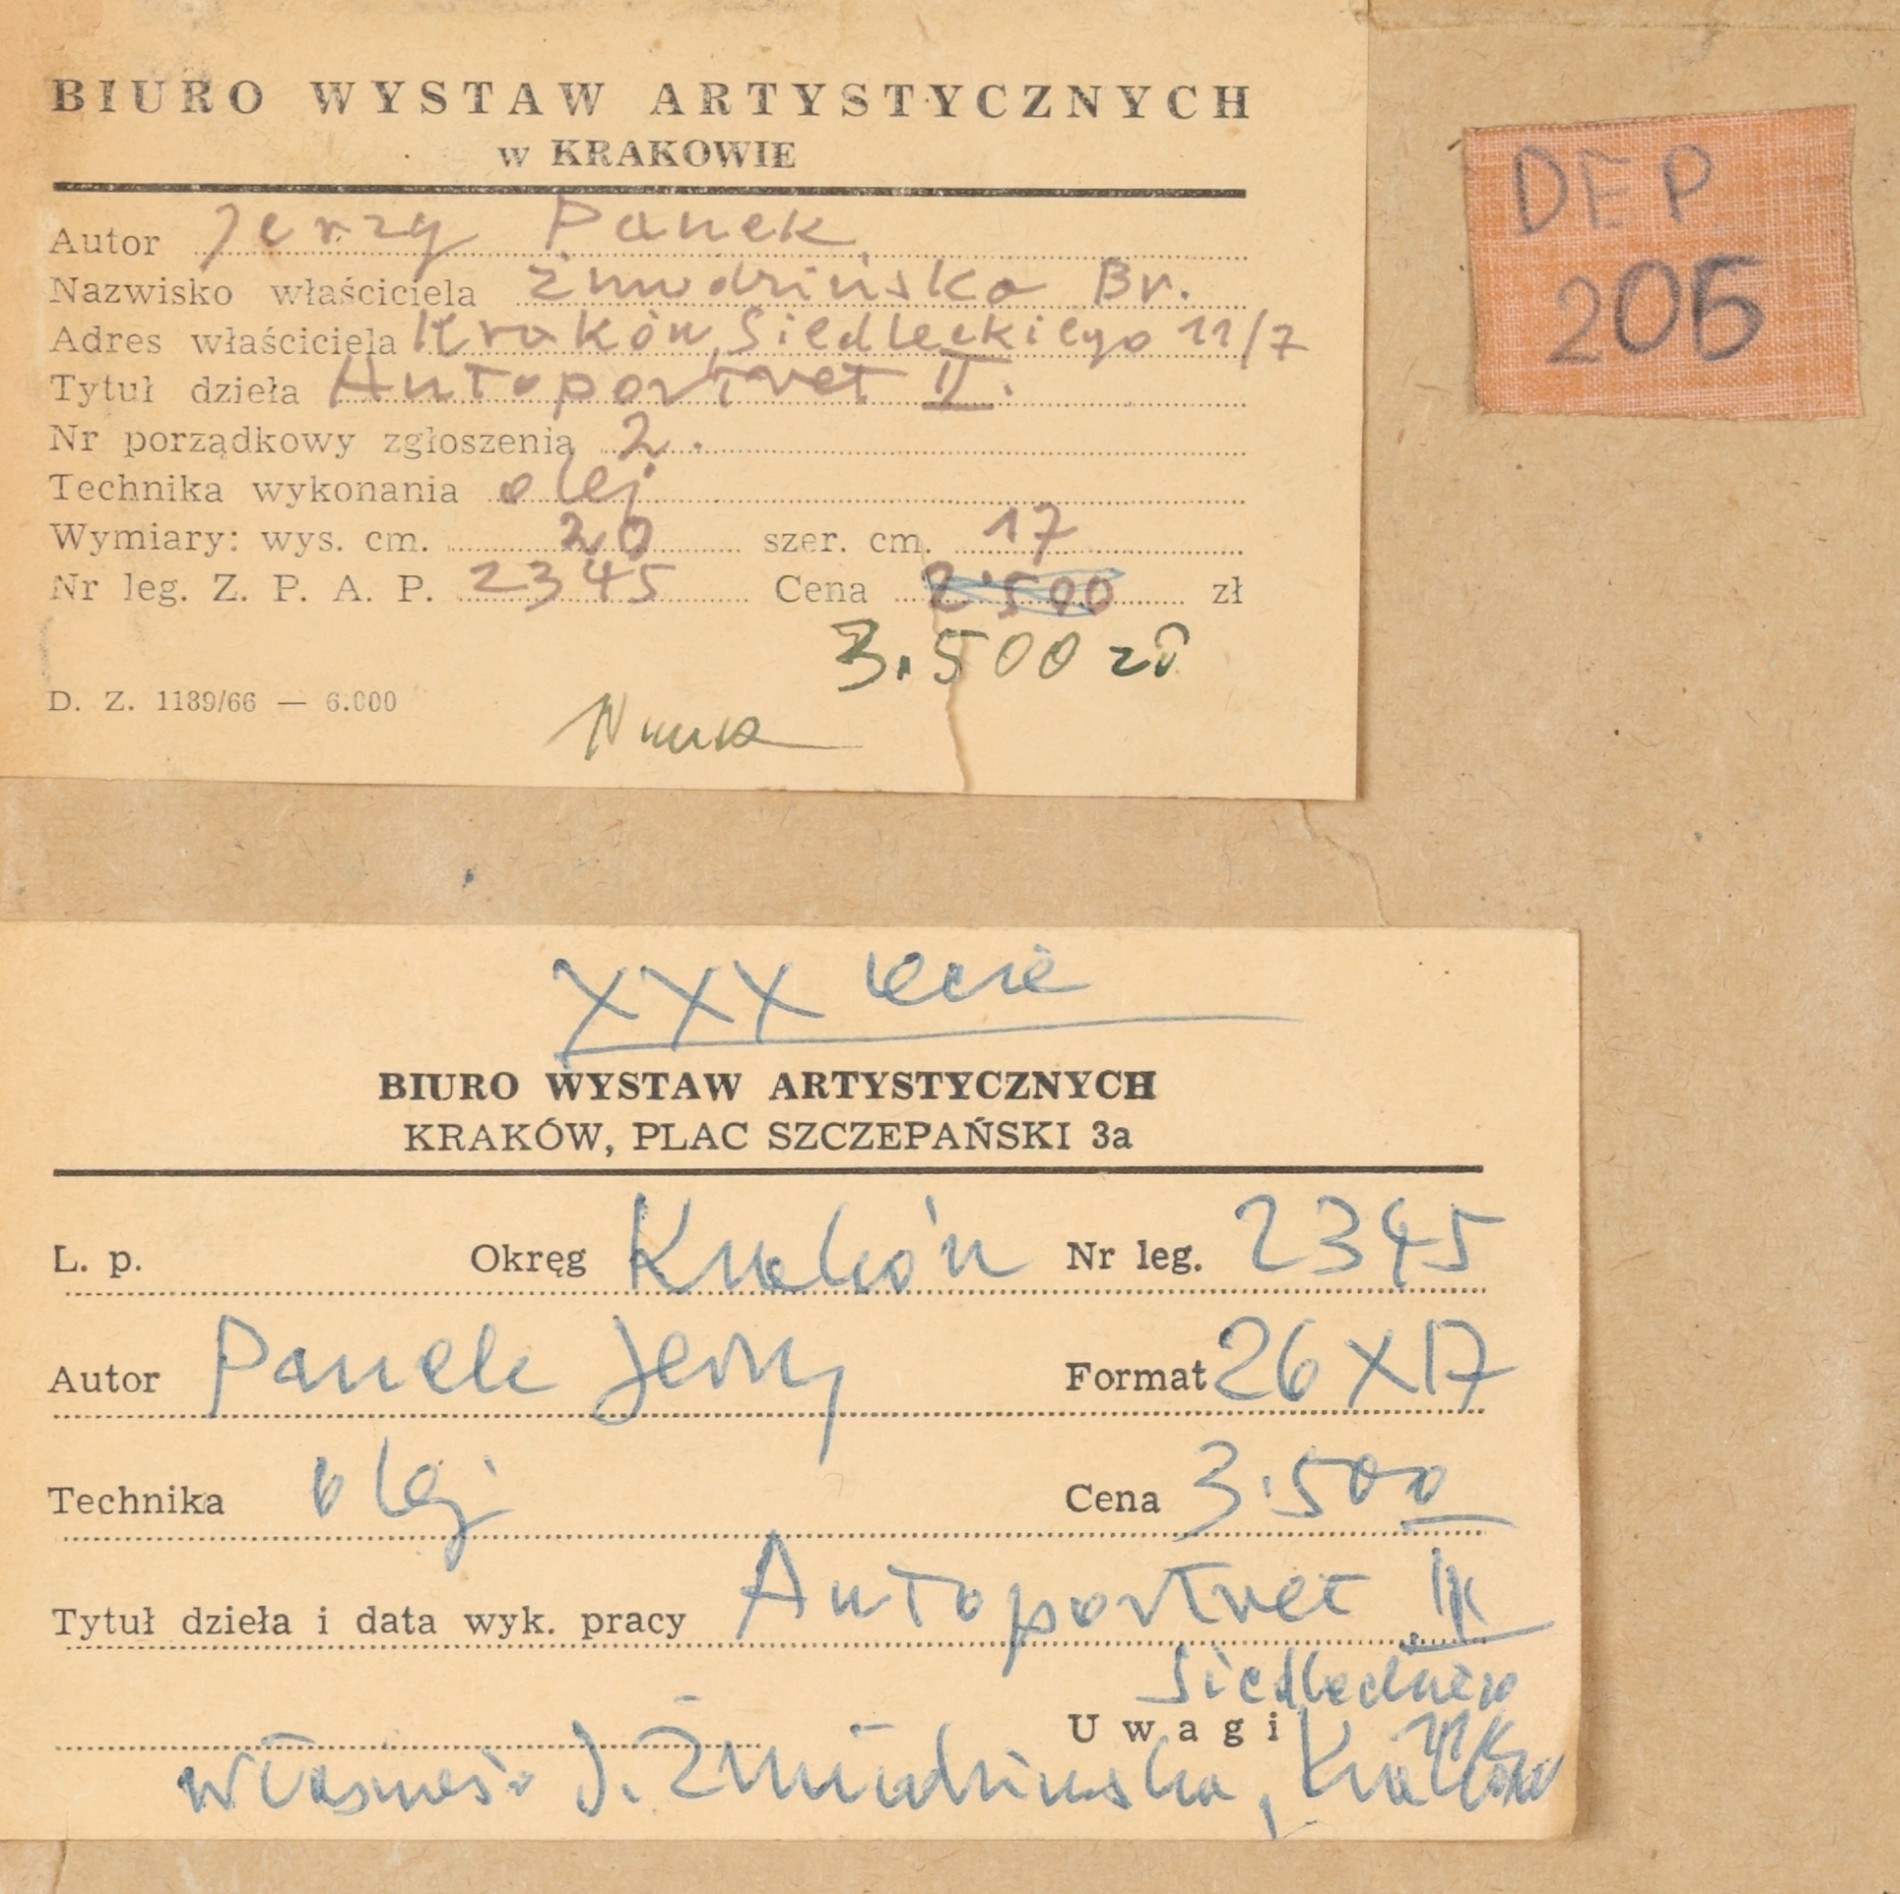 BIURO WYSTAW ARTYSTYCZNYCH
w KRAKOWIE
Autor Jerzy Panek
Nazwisko właściciela Żmudzińska Br.
Adres właściciela Kraków, Siedleckiego 11/7
Tytuł dzieła Autoportret II.
Nr porządkowy zgłoszenia 2.
Technika wykonania olej
Wymiary: wys. cm. 20 szer. cm. 17
Nr leg. Z. P. A. P. 2345 Cena 2.500 zł
3.500 zł
D. Z. 1189/66 — 6.000
DEP.
205
XXX lecie
BIURO WYSTAW ARTYSTYCZNYCH
KRAKÓW, PLAC SZCZEPAŃSKI 3a
L. p. Okręg Kraków Nr leg. 2345
Autor Panek Jerzy Format 26 X 17
Technika olej Cena 3.500
Tytuł dzieła i data wyk. pracy Autoportret
Uwagi
własność J. Żmudzińska, Kraków